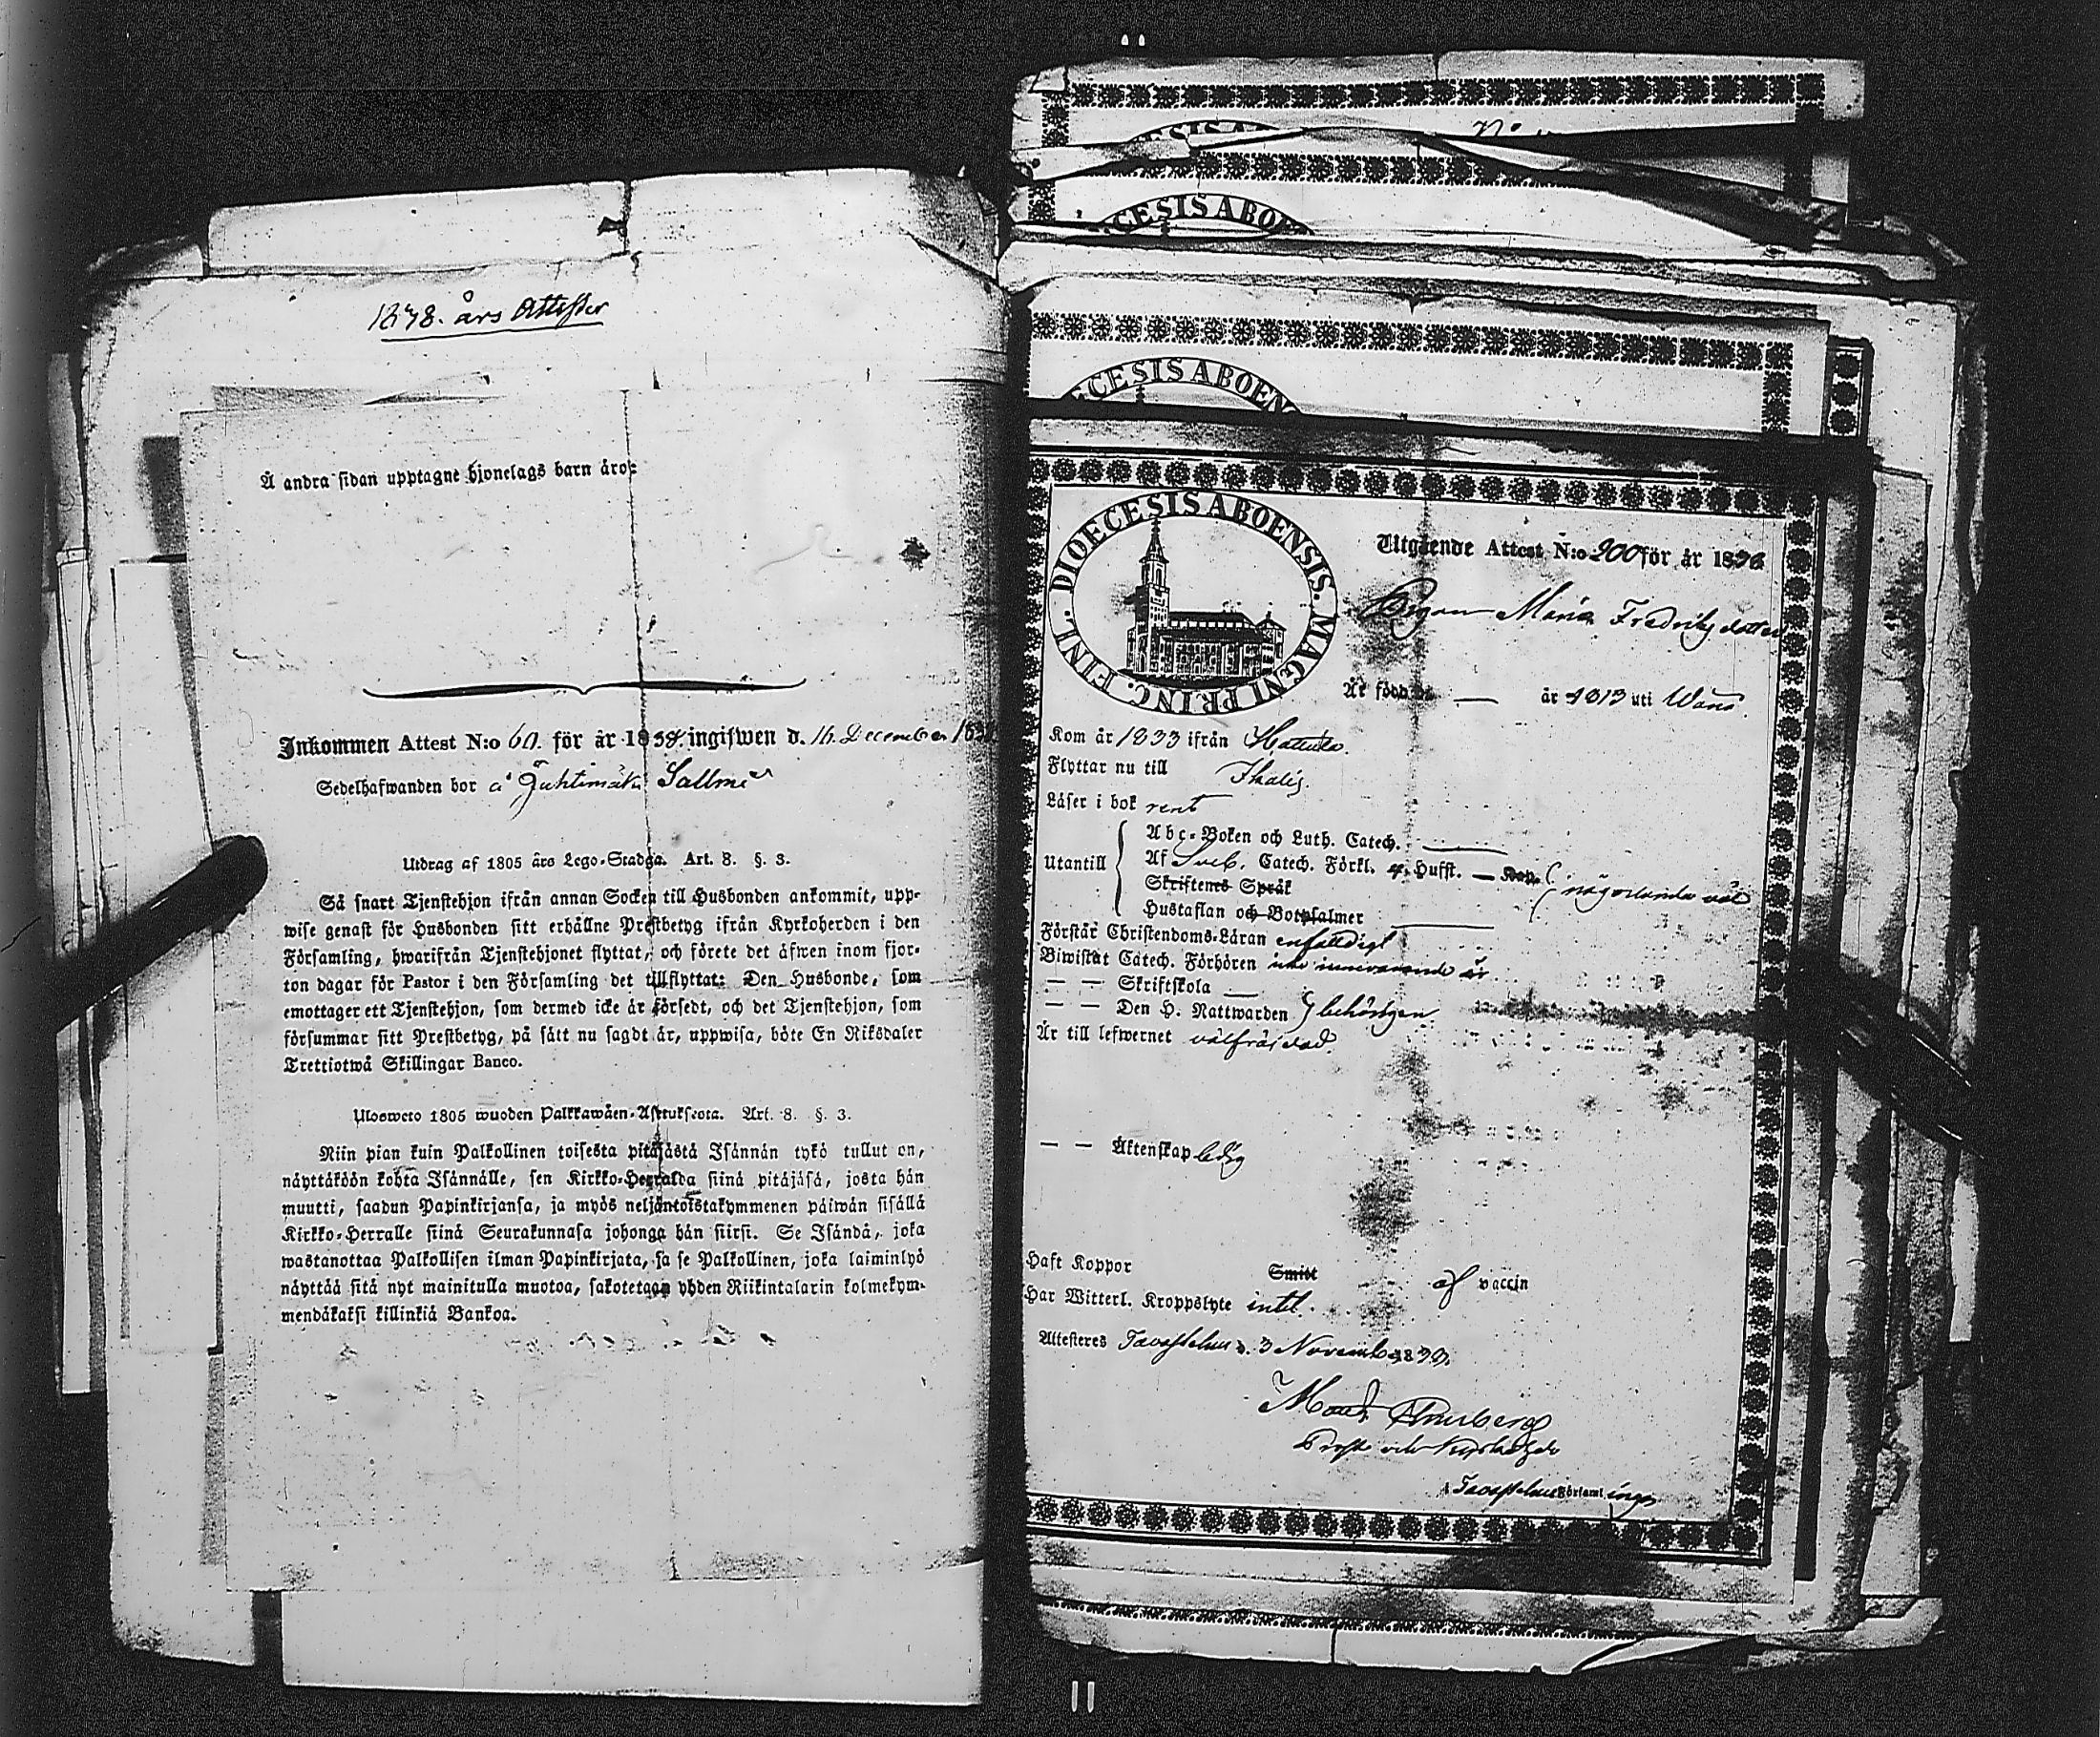 1838. års Attester
Å andra sidan upptagne hjonelags barn äro:
Inkommen Attest N:o 60. för år 1838. ingifwen d. 16. December
Sedelhafwanden bor å Juhtimäki Sallmé
Utdrag af 1805 års Lego-Stadga. Art. 8. §. 3.
Så snart Tjenstehjon ifrån annan Socken till Husbonden ankommit, upp-
wise genast för Husbonden sitt erhållne Prestbetyg ifrån Kyrkoherden i den
Församling, hwarifrån Tjenstehjonet flyttat, och förete det äfwen inom fjor-
ton dagar för Pastor i den Församling det tillflyttat: Den Husbonde, som
emottager ett Tjenstehjon, som dermed icke är försedt, och det Tjenstehjon, som
försummar sitt Prestbetyg, på sätt nu sagdt är, uppwisa, böte En Riksdaler
Trettiotwå Skillingar Banco.
Ulosweto 1805 wuoden Palkkawäen-Asetuksesta. Art. 8. §. 3.
Niin pian kuin Palkollinen toisesta pitäjästä Isännän tykö tullut on,
näyttäköön kohta Isännälle, sen Kirkko-Herralda siinä pitäjäsä, josta hän
muutti, saadun Papinkirjansa, ja myös neljäntoistakymmenen päiwän sisällä
Kirkko-Herralle siinä Seurakunnasa johonga hän siirsi. Se Isändä, joka
wastanottaa Palkollisen ilman Papinkirjata, ja se Palkollinen, joka laiminlyö
näyttää sitä nyt mainitulla muotoa, sakotetaan yhden Riikintalarin kolmekym-
mendäkaksi killinkiä Bankoa.
CESIS AB
CESIS ABOE
ECESIS ABOEN
DIOECESIS ABOENSIS. MAGNI PRINC. FINL.
Utgående Attest N:o 200 för år 1838
Pigan Maria Fredriksdotter
Är född d. — år 1813 uti Wånå.
Kom år 1833 ifrån Hattula.
Flyttar nu till Ikalis.
Läser i bok rent
Utantill
Abc-Boken och Luth. Catech.
Af Sveb. Catech. Förkl. 4. Hufst. — Kap.
någorlunda väl
Skriftenes Språk
Hustaflan och Botpsalmer
Förstår Christendoms-Läran enfaldigt
Biwistat Catech. Förhören inn innevarande år
— — Skriftskola —
— — Den H. Nattwarden behörigen.
Är till lefwernet välfräjdad.
— — Äktenskap ledig
Haft Koppor Smitt af vaccin
Har Witterl. Kroppslyte intet.
Attesteres Tavastehus d. 3 November 1838.
Prost och Kyrkoherde
i Tavastehus Församlingen